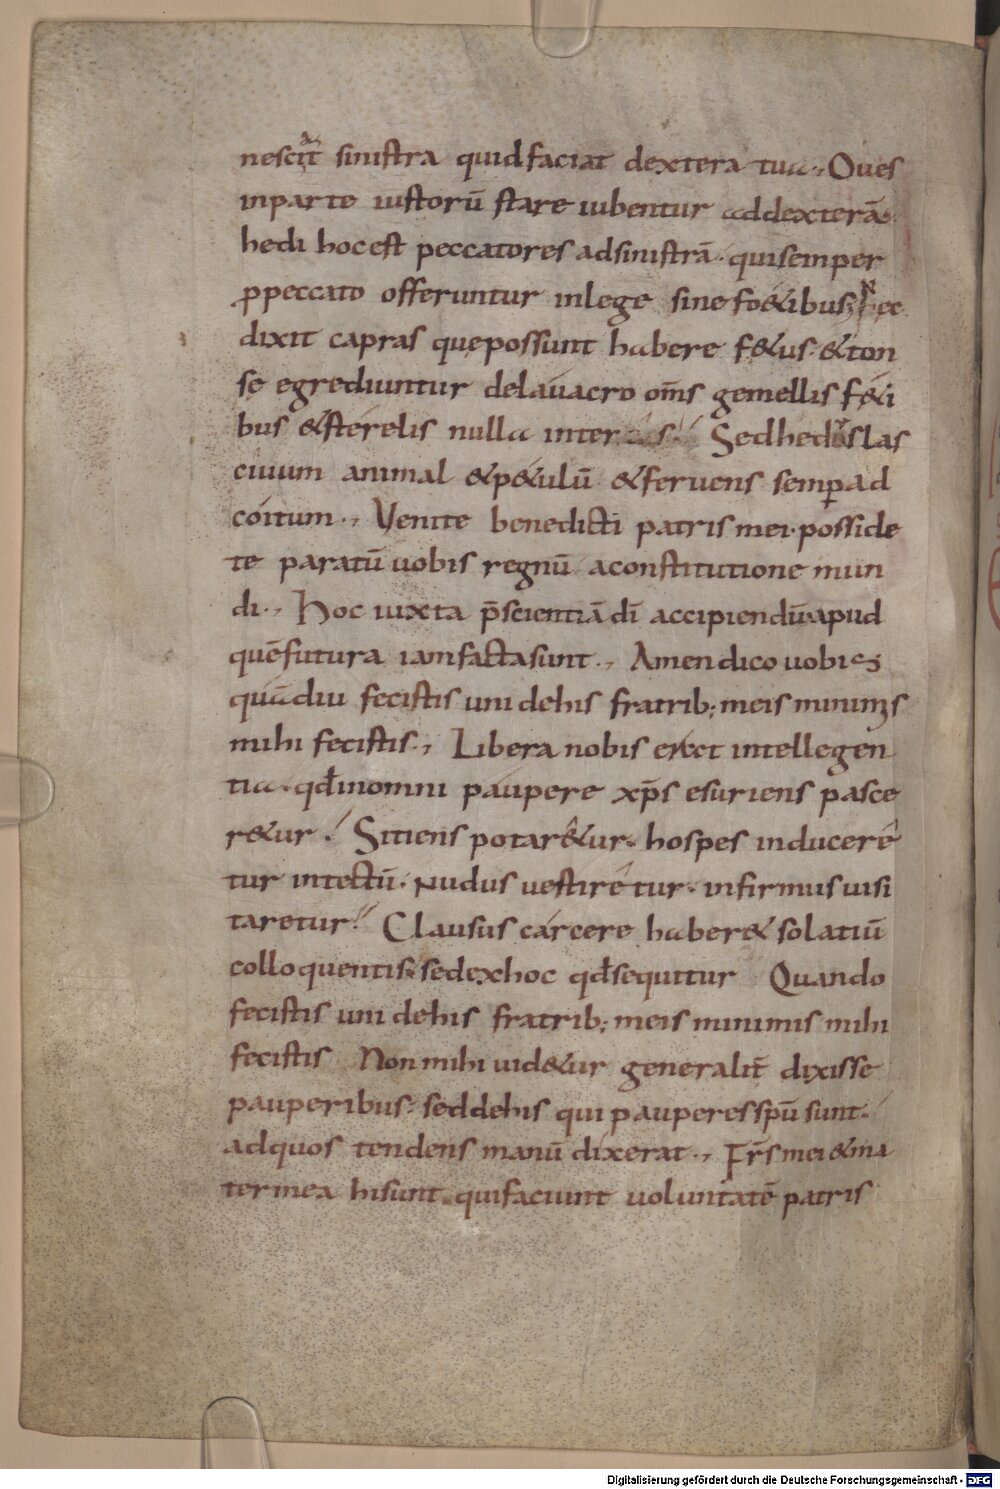 nesciat sinistra quid faciat dextera tua., Oues
inparte iustorū stare iubentur addexterā.
hedi hocest peccatores adsinistrā. quisemper
ꝓpeccato offeruntur inlege sine fo&ibus. Nec
dixit capras quepossunt habere f&us. &ton
sę egrediuntur delauacro om̄s gemellis f&i
bus &sterelis nulla inter s. Sedhedus las
ciuum animal &p&ulū &feruens semp̱ad
coitum., Venite benedicti patris mei. posside
te paratū uobis regnū aconstitutione mun
di., Hoc iuxta p̄scientiā dī accipiendū apud
quē futura iamfactasunt., Amen dico uobis
quādiu fecistis uni dehis fratrib; meis minimis
mihi fecistis., Libera nobis erect intellegen
tia. qđinomni paupere xp̄s esuriens pasce
r&ur. Sitiens potar&ur. hospes inducere
tur intectū. Nudus uestiretur. infirmus uisi
taretur. Clausus carcere haber& solatiū
colloquentis. sedexhoc qđsequitur Quando
fecistis uni dehis fratrib; meis minimis mihi
fecistis Non mihi uid&ur generalit̄ dixisse
pauperibus. seddehis qui pauperes sp̄u sunt.
adquos tendens manū dixerat., Fr̄s mei &ma
ter mea hisunt. quifaciunt uoluntatē patris
Digitalisierung gefördert durch die Deutsche Forschungsgemeinschaft - DFG